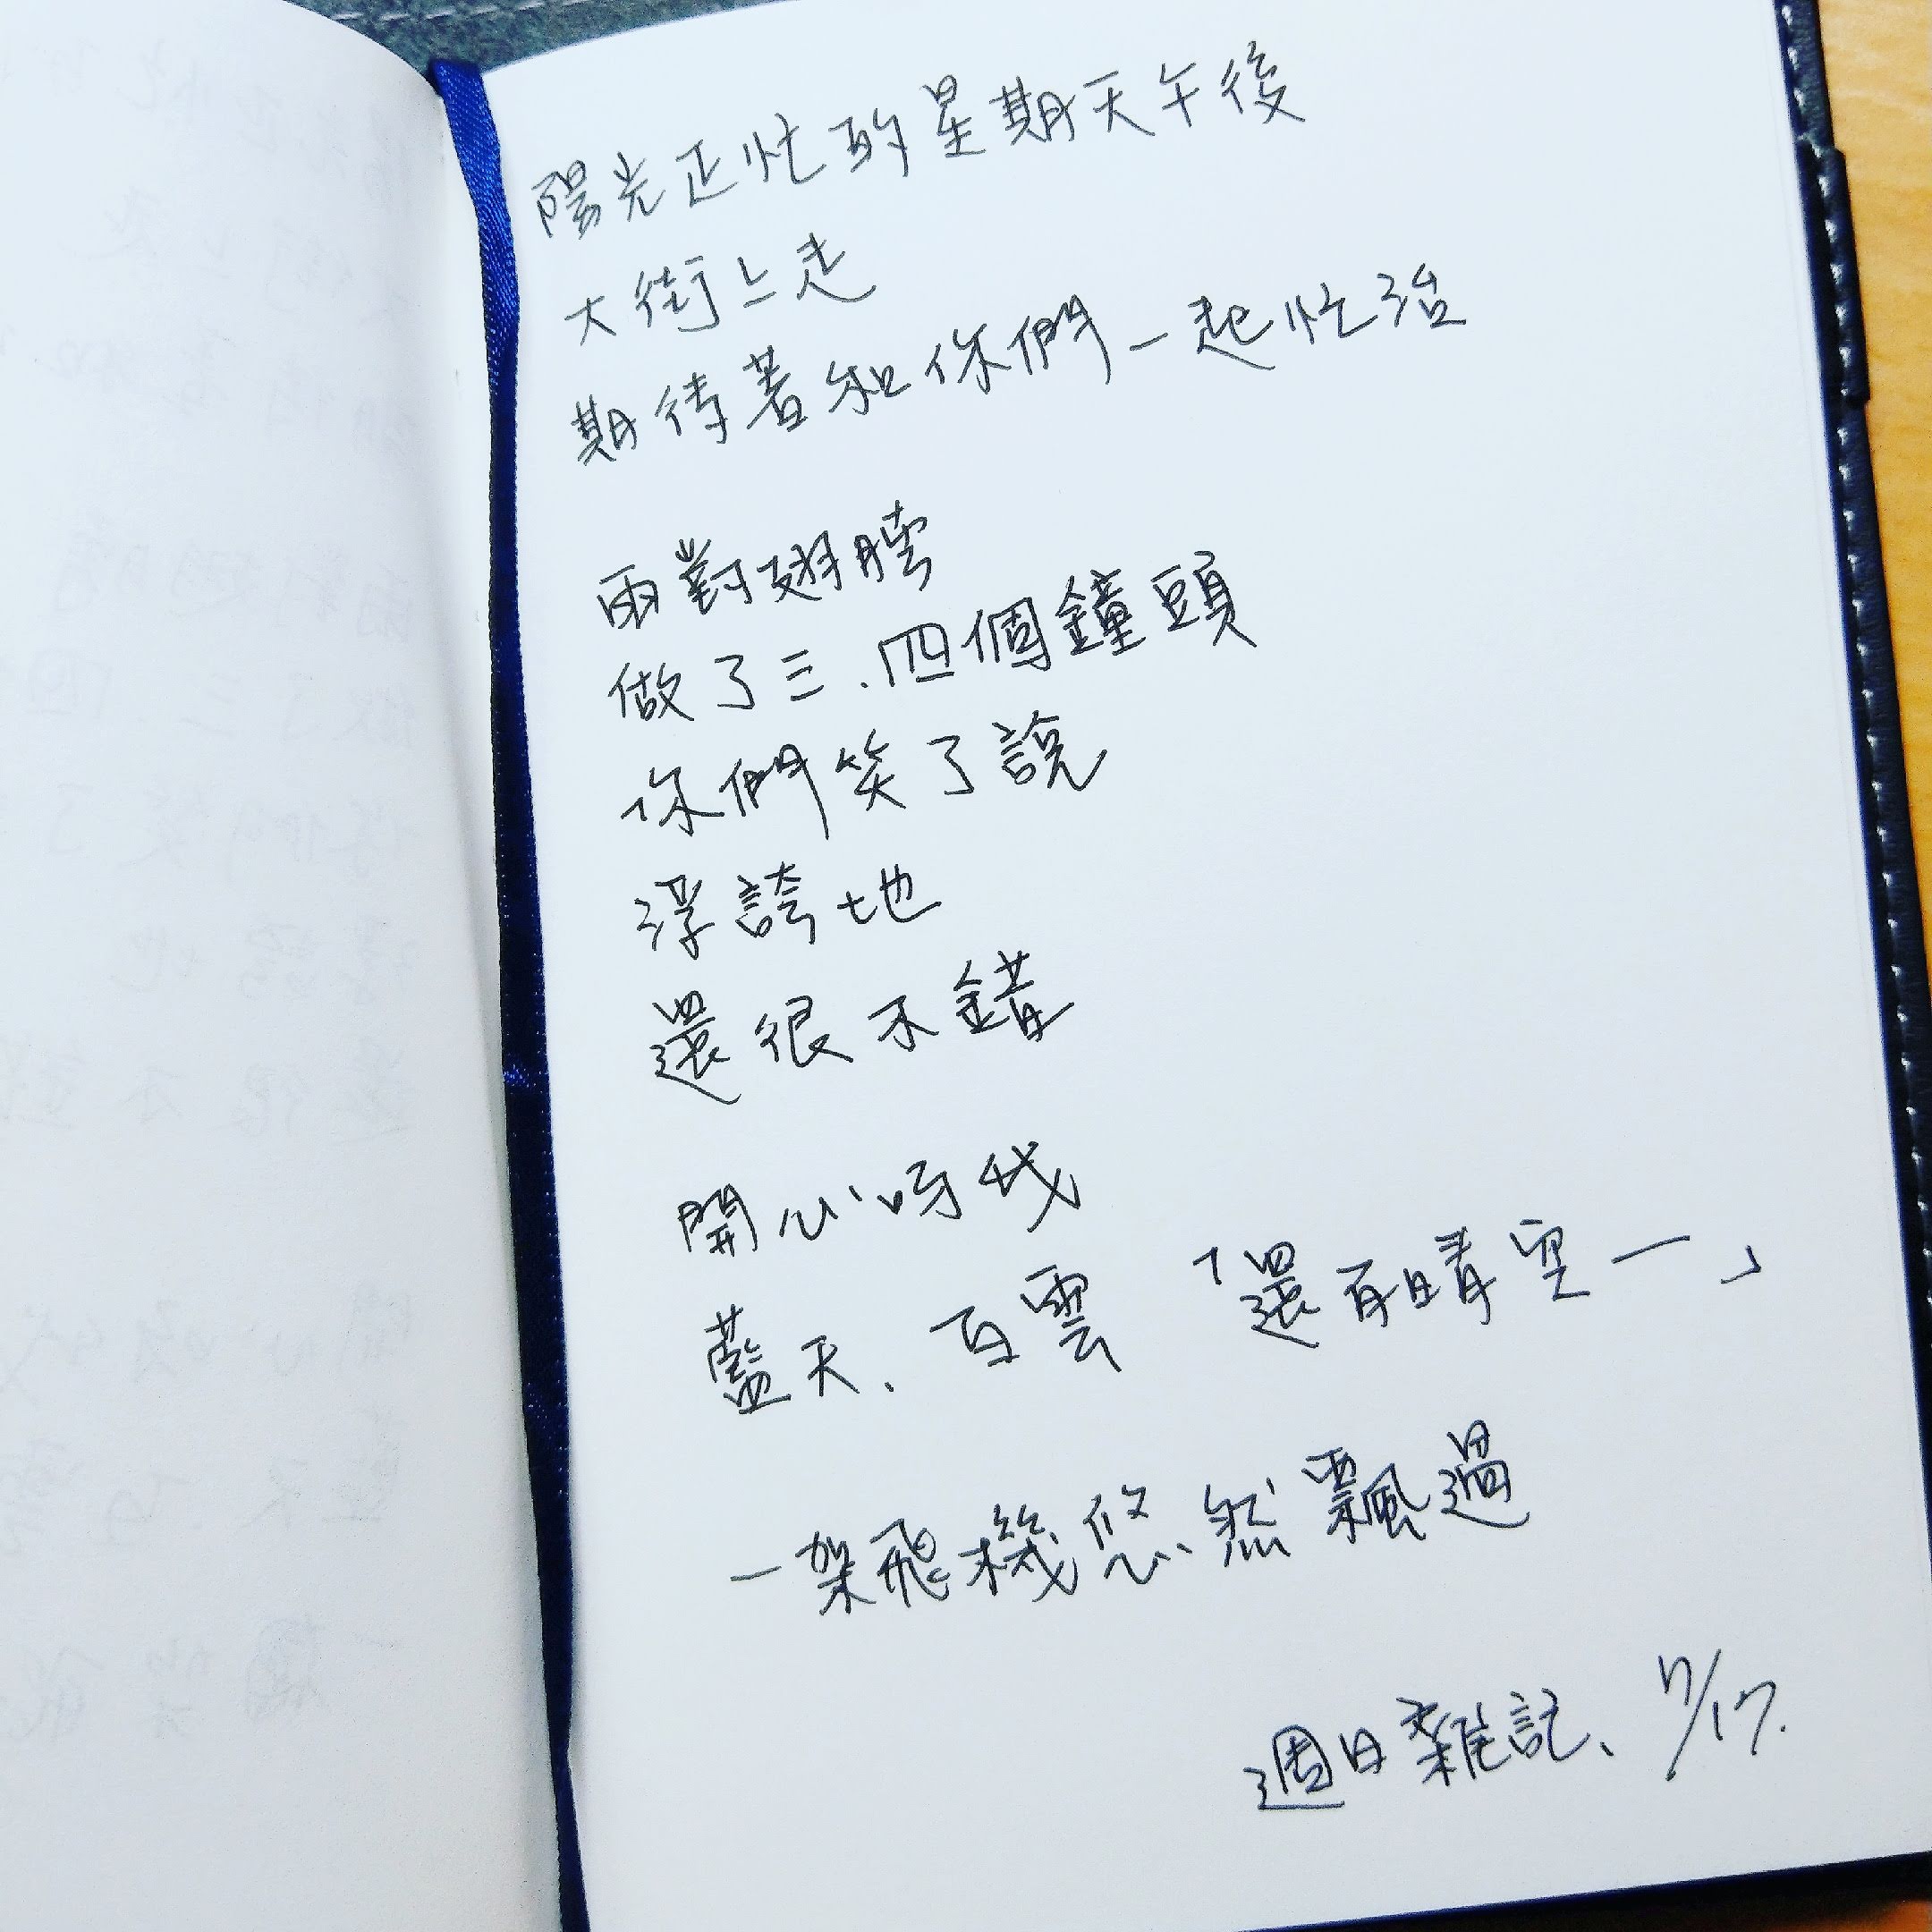 陽光正忙的星期天午後
大街上走
期待著和你們一起忙活
兩對翅膀
做了三、四個鐘頭
你們笑了說
浮誇地
還很不錯
開心呀我
藍天、白雲「還有晴空一」
一架飛機悠然飄過
週日雜記、7/17.